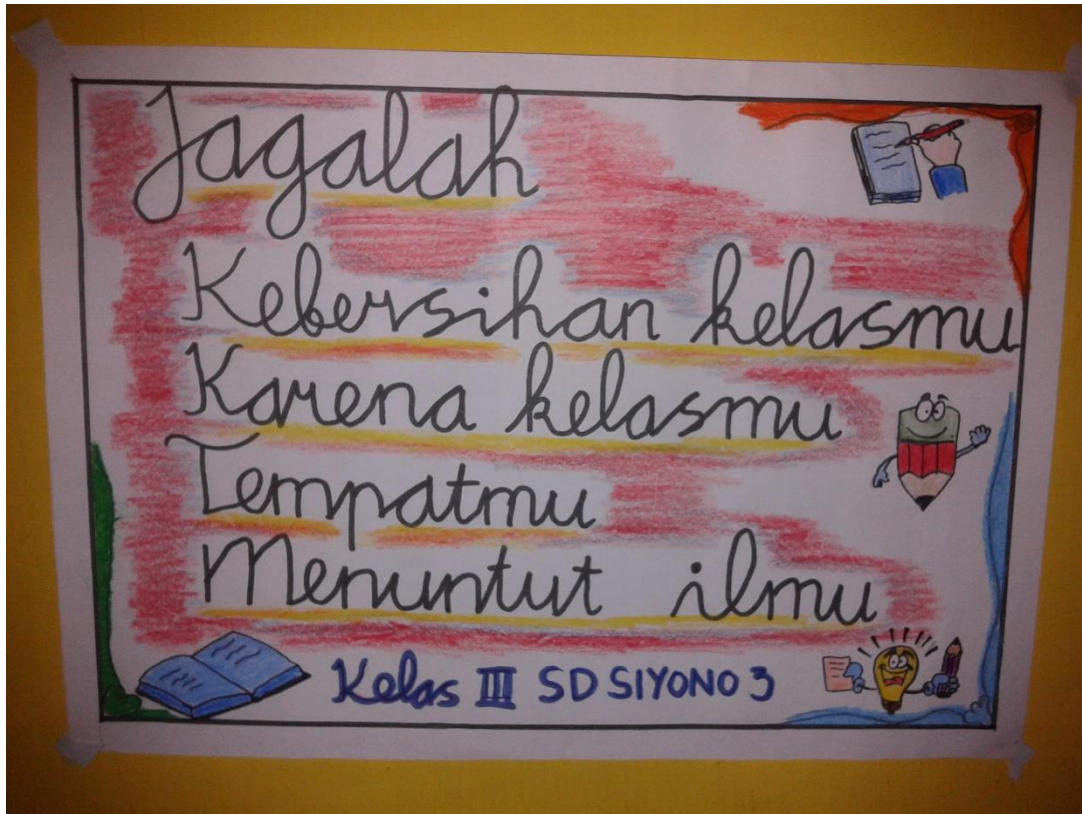 Jagalah
Kebersihan kelasmu
Karena kelasmu
Tempatmu
Menuntut ilmu
Kelas III SD SIYONO 3